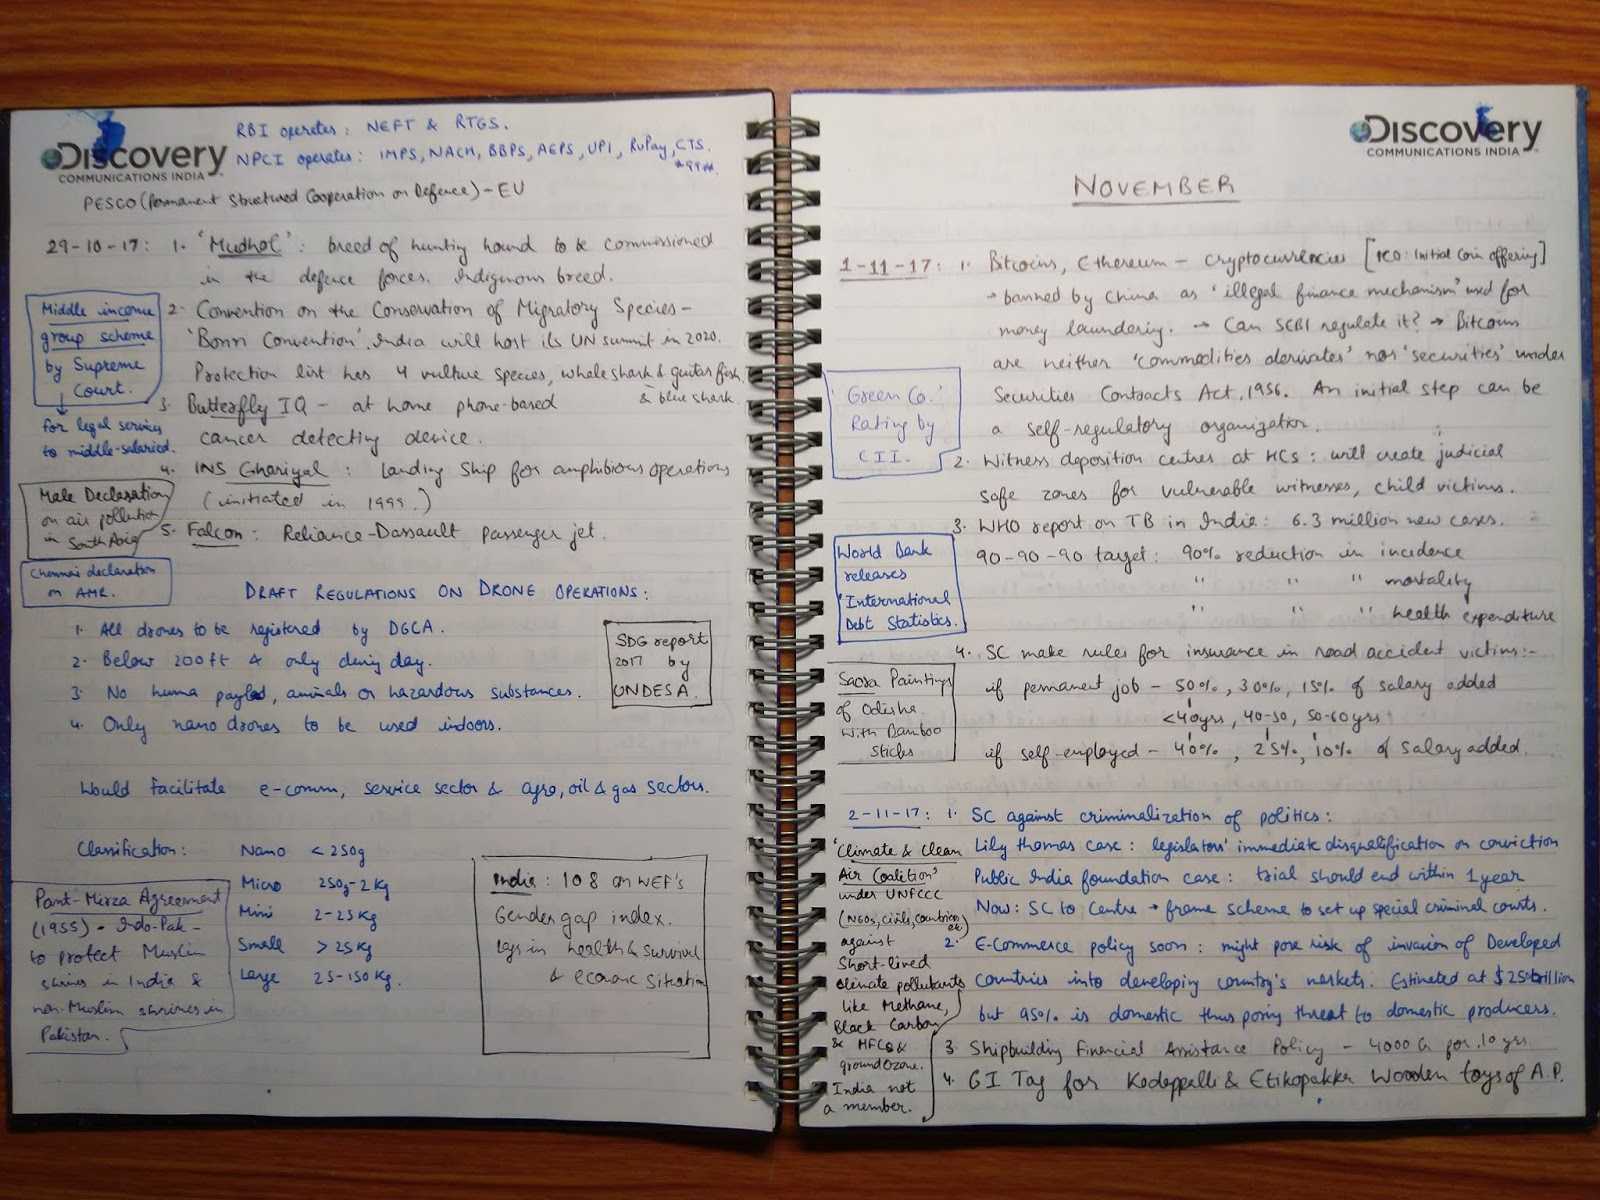 Discovery
COMMUNICATIONS INDIA
RBI operates: NEFT & RTGS.
NPCI operates: IMPS, NACH, BBPS, AEPS, UPI, RuPay, CTS.
*99#.
PESCO (Permanent Structured Cooperation on Defence) - EU
29-10-17: 1. 'Mudhol': breed of hunting hound to be commissioned
in the defence forces. Indigenous breed.
2. Convention on the Conservation of Migratory Species -
'Bonn Convention'. India will host its UN summit in 2020.
Protection list has 4 vulture species, whale shark & guitar fish.
& blue shark.
3. Butterfly IQ - at home phone-based
cancer detecting device.
4. INS Ghariyal: Landing Ship for amphibious operations
(initiated in 1999.)
5. Falcon: Reliance-Dassault passenger jet.
Middle income
group scheme
by Supreme
Court.
for legal services
to middle-salaried.
Male Declaration
on air pollution
in South Asia
Chennai declaration
on AMR.
DRAFT REGULATIONS ON DRONE OPERATIONS:
1. All drones to be registered by DGCA.
2. Below 200ft & only during day.
3. No human payload, animals or hazardous substances.
4. Only nano drones to be used indoors.
SDG report
2017 by
UNDESA.
Would facilitate e-comm, service sector & agro, oil & gas sectors.
Classification: Nano < 250g
Micro 250g-2 Kg
Mini 2-25 Kg
Small > 25 Kg
Large 25-150 Kg.
Pant-Mirza Agreement
(1955) - Indo-Pak -
to protect Muslim
shrines in India &
non-Muslim shrines in
Pakistan.
India: 108 on WEF's
Gender gap index.
Lags in health & survival
& economic situation
Discovery
COMMUNICATIONS INDIA
NOVEMBER
1-11-17: 1. Bitcoins, Ethereum - cryptocurrencies [ICO: Initial Coin offering]
→ banned by China as 'illegal finance mechanism' used for
money laundering. → Can SEBI regulate it? → Bitcoins
are neither 'commodities derivates' nor 'securities' under
Securities Contracts Act, 1956. An initial step can be
a self-regulatory organization.
2. Witness deposition centres at HCs: will create judicial
safe zones for vulnerable witnesses, child victims.
3. WHO report on TB in India: 6.3 million new cases.
90-90-90 target: 90% reduction in incidence
" " " mortality
" " " health expenditure
4. SC make rules for insurance in road accident victims:-
if permanent job - 50%, 30%, 15% of salary added
<40yrs, 40-50, 50-60yrs
if self-employed - 40%, 25%, 10% of salary added.
'Green Co.'
Rating by
CII.
World Bank
releases
'International
Debt Statistics.'
Saora Paintings
of Odisha
with Bamboo
sticks
2-11-17: 1. SC against criminalization of politics:
Lily Thomas case: legislators' immediate disqualification on conviction
Public India foundation case: trial should end within 1 year
Now: SC to Centre → frame scheme to set up special criminal courts.
2. E-Commerce policy soon: might pose risk of invasion of Developed
countries into developing country's markets. Estimated at $ 25
but 95% is domestic thus posing threat to domestic producers.
3. Shipbuilding Financial Assistance Policy - 4000 Cr for 10 yrs
4. GI Tag for Kodappalli & Etikopakka Wooden toys of A.P.
'Climate & Clean
Air Coalition'
under UNFCCC
(NGOs, civils, countries
etc)
against
Short-lived
climate pollutants
like Methane,
Black Carbon
& HFCs &
ground Ozone.
India not
a member.